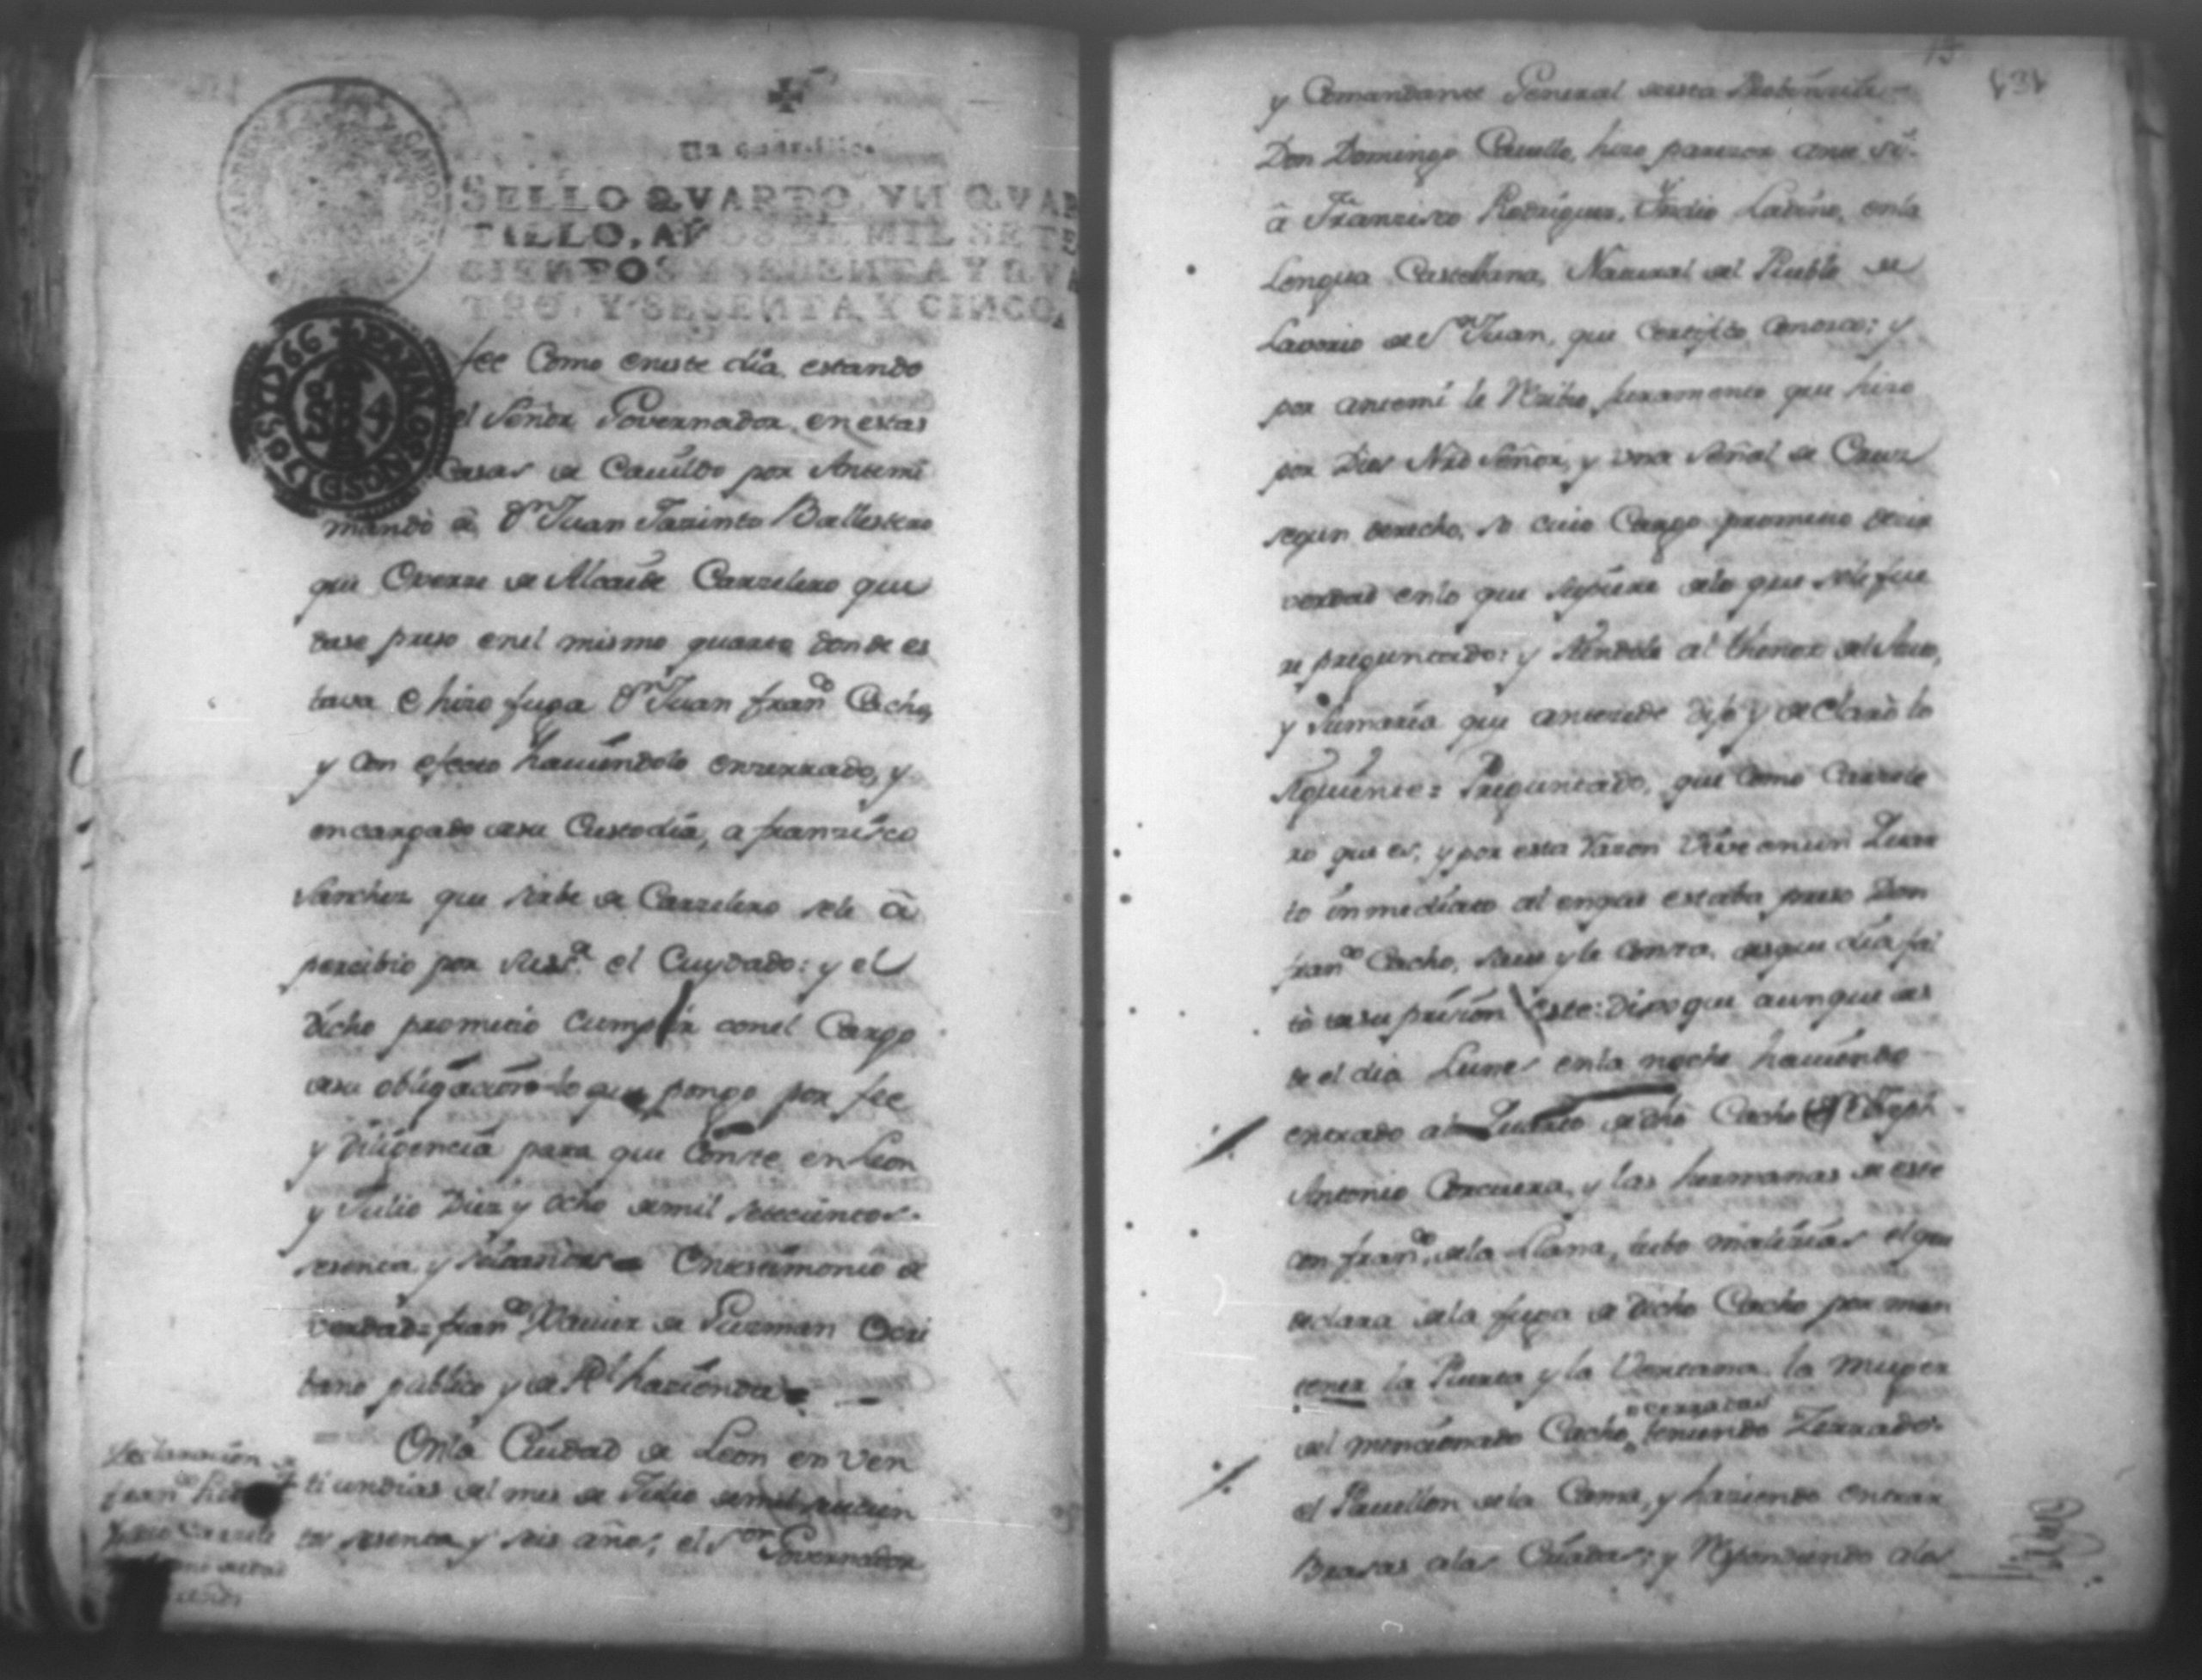 Un quartillo.
SELLO QVARTO, VN QVAR
TILLO, AÑOS DE MIL SETE
CIENTOS Y SESENTA Y QVA
TRO, Y SESENTA Y CINCO.
fee Como eneste dia, estando
el Señor Governador en estas
Casas de Cavildo por Antemi
mandò â Dn Juan Jazinto Ballestero
que Exerze de Alcaide Carzelero que
tuvo preso enel mismo quarto donde es
tava e hizo fuga Dn Juan franco Cacho,
y con efecto haviendolo enzerrado, y
encargado desu Custodia, a franzisco
Sanchez que sirbe de Carzelero sele â
percibio por el Cuydado: y el
dicho prometio Cumplir conel Cargo
desu obligacion lo que pongo por fee
y diligencia para que Conste en Leon
y Julio Diez y ocho demil setecientos
sesenta y seis años = Entestimonio de
verdad= franco Xavier de Guzman Escri
bano publico y de Rl hacienda =
Declaracion de
franco
Yndio Carzele
Enla Ciudad de Leon en Vein
ti undias del mes de Julio demil setecien
tos sesenta y seis años; el Sor Governador
15
131
y Comandante General desta Probincia
Don Domingo Cavello, hizo parezer ante si
â Franzisco Rodriguez, Yndio Ladino, enla
Lengua Castellana, Natural del Pueblo de
Lavorio de Sn Juan, que Certifico Conozco; y
por antemi le Rezibio juramento que hizo
por Dios Nro Señor, y una señal de Cruz
segun derecho, so cuio Cargo prometio decir
verdad enlo que supiere delo que sele fue
re preguntado: y siendole al thenor del Auto,
y Sumaria que antecede dijo y declarò lo
siguiente: Preguntado, que Como Carzele
ro que es, y por esta razon Vive enun Quar
to inmediato al enque estaba preso Don
franco Cacho, save y le Consta, desque dia fal
tò desu prision este: Dixo que aunque des
de el dia Lunes enla noche haviendo
entrado al Quarto de dho Cacho Dn Joseph
Antonio Corcuera, y las hermanas de este
con franco dela Llana, tubo malicias el que
declara dela fuga de dicho Cacho por man
tener la Puerta y la Ventana la Muger
zerradas
del mencionado Cacho, teniendo Zerrado
el Pavellon dela Cama, y haziendo entrar
Brasas alas Criadas; y Respondiendo alos